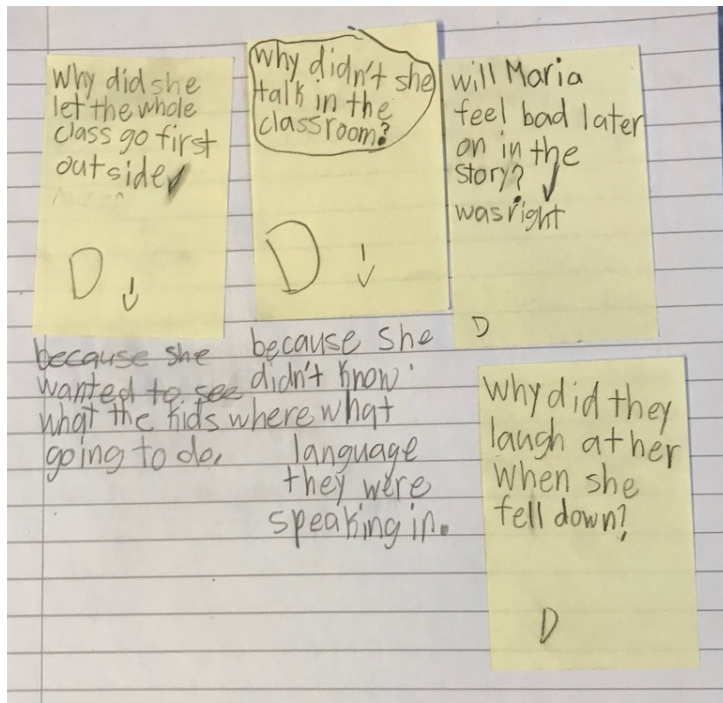 Why did she
let the whole
class go first
outside
D
because she
wanted to see
what the kids where
going to do.
why didn't she
talk in the
classroom?
D
because she
didn't know
what
language
they were
speaking in.
will Maria
feel bad later
on in the
story?
was right
D
Why did they
laugh at her
When she
fell down?
D